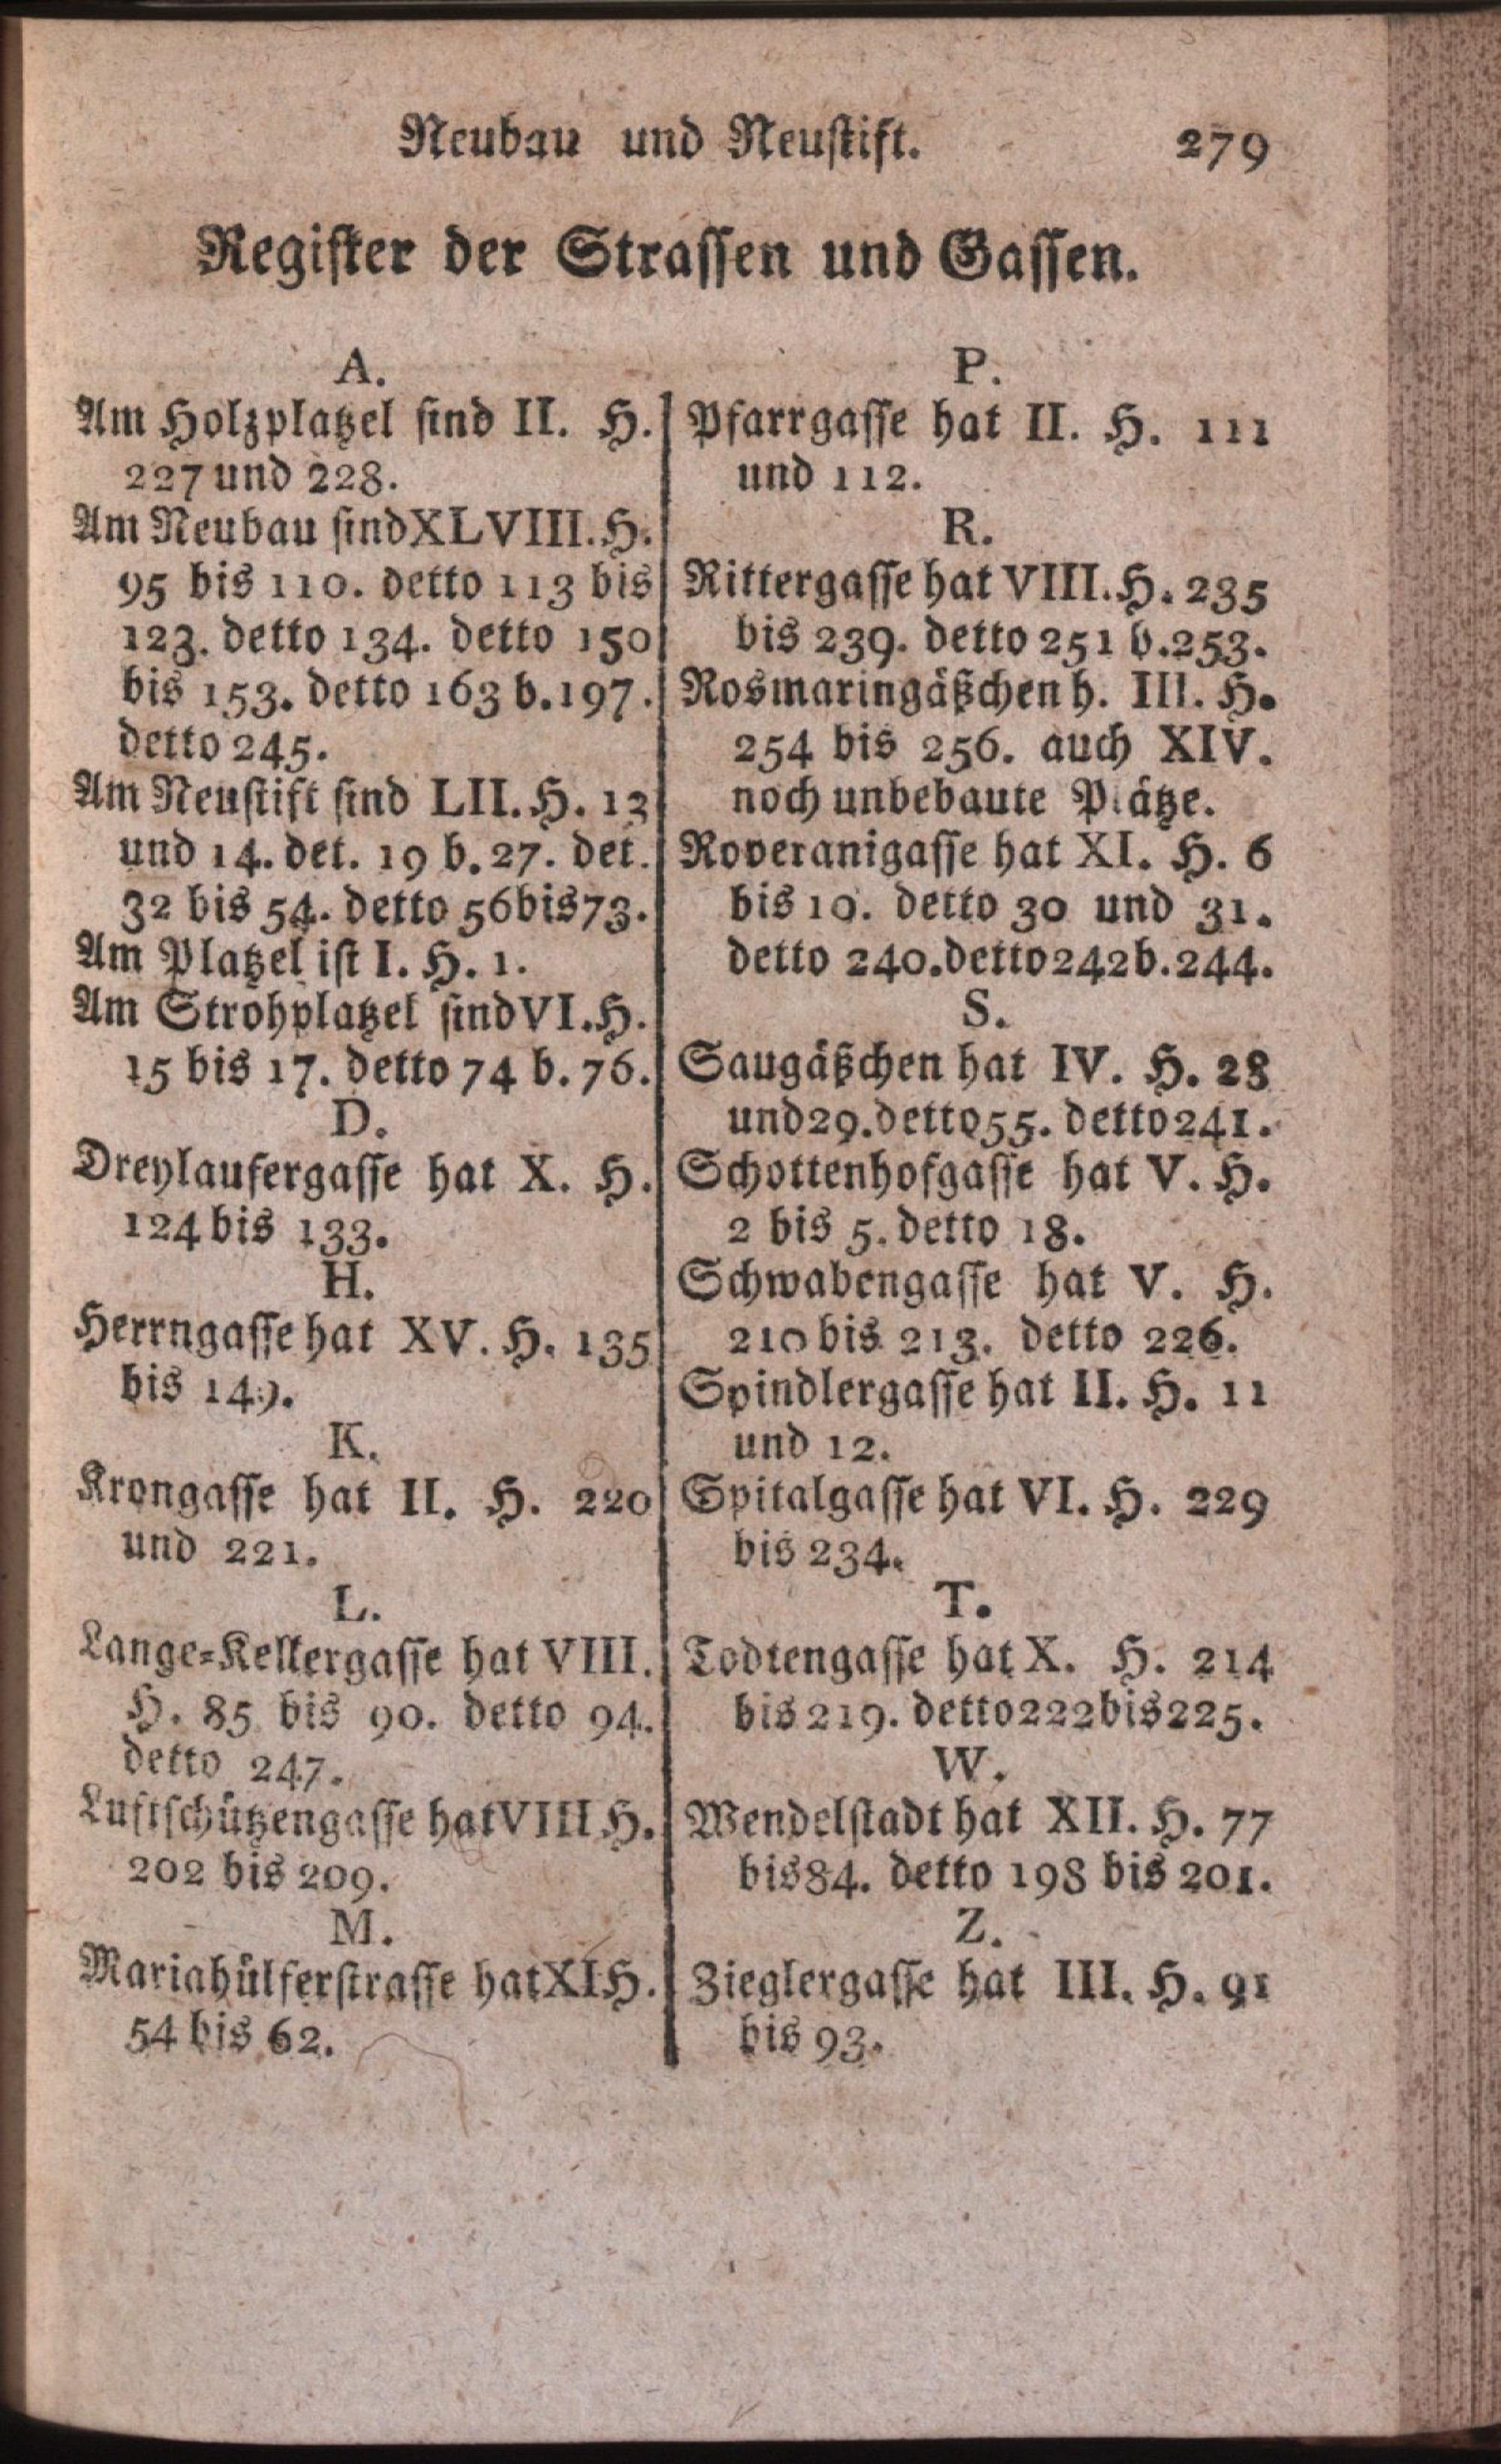 Neubau und Neustift. 279
Register der Strassen und Gassen.
A.
Am Holzplatzel sind II. H.
227 und 228.
Am Neubau sind XLVIII. H.
95 bis 110. detto 113 bis
123. detto 134. detto 150
bis 153. detto 163 b. 197.
detto 245.
Am Neustift sind LII. H. 13
und 14. det. 19 b. 27. det.
32 bis 54. detto 56 bis 73.
Am Platzel ist I. H. 1.
Am Strohplatzel sind VI. H.
15 bis 17. detto 74 b. 76.
D.
Dreylaufergasse hat X. H.
124 bis 133.
H.
Herrngasse hat XV. H. 135
bis 149.
K.
Krongasse hat II. H. 220
und 221.
L.
Lange-Kellergasse hat VIII.
H. 85 bis 90. detto 94.
detto 247.
Luftschützengasse hat VIII H.
202 bis 209.
M.
Mariahülferstrasse hat XI H.
54 bis 62.
P.
Pfarrgasse hat II. H. 111
und 112.
R.
Rittergasse hat VIII. H. 235
bis 239. detto 251 b. 253.
Rosmaringäßchen h. III. H.
254 bis 256. auch XIV.
noch unbebaute Plätze.
Roveranigasse hat XI. H. 6
bis 10. detto 30 und 31.
detto 240. detto 242 b. 244.
S.
Saugäßchen hat IV. H. 28
und 29. detto 55. detto 241.
Schottenhofgasse hat V. H.
2 bis 5. detto 18.
Schwabengasse hat V. H.
210 bis 213. detto 226.
Spindlergasse hat II. H. 11
und 12.
Spitalgasse hat VI. H. 229
bis 234.
T.
Todtengasse hat X. H. 214
bis 219. detto 222 bis 225.
W.
Wendelstadt hat XII. H. 77
bis 84. detto 198 bis 201.
Z.
Zieglergasse hat III. H. 91
bis 93.